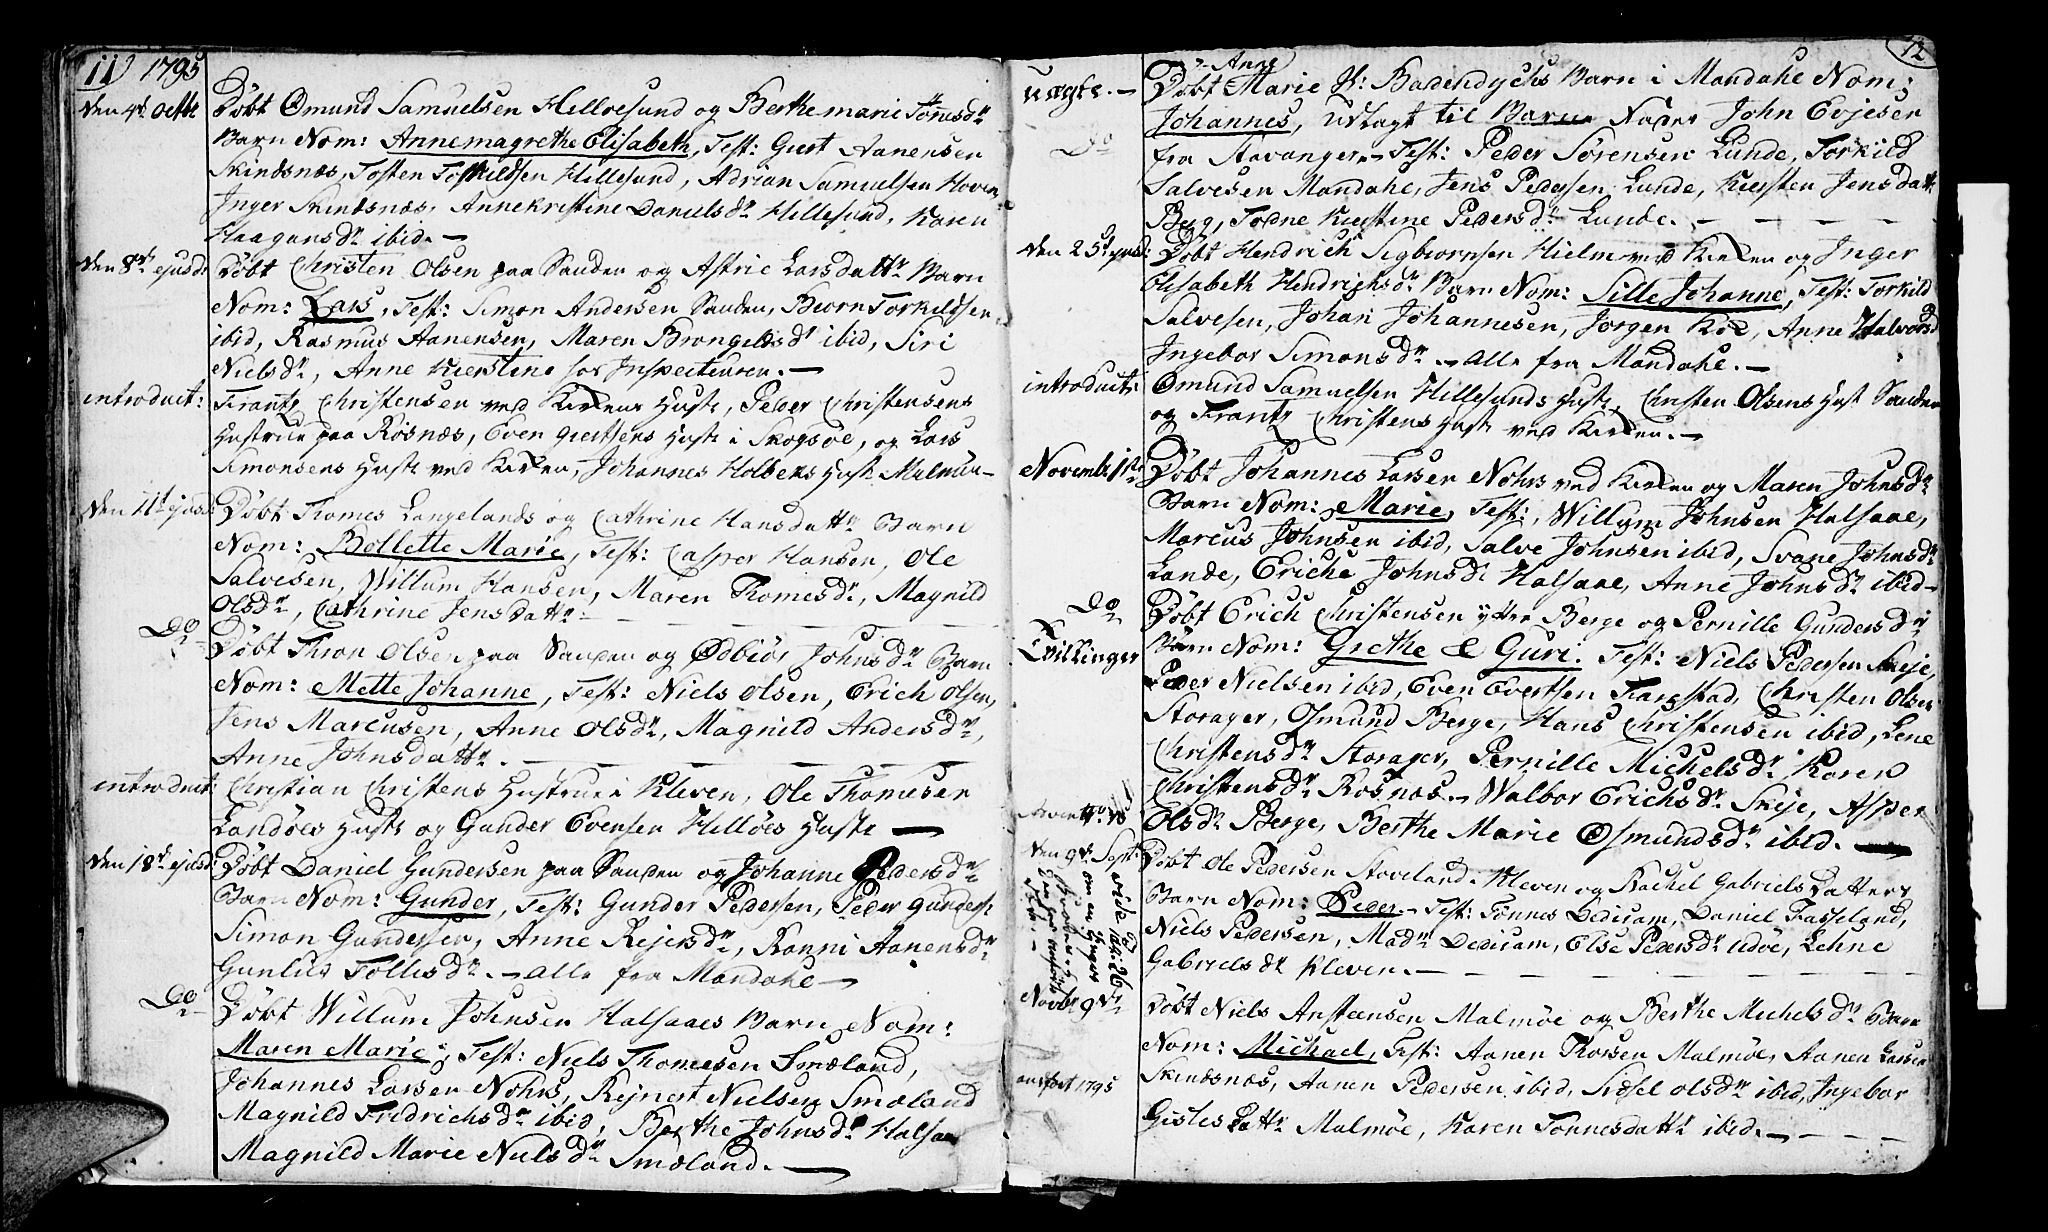 11) 1795
den 4de Octbr Døbt Omund Samuelsen Hillesund og Berthe marie Tönesdr
Barn Nom: Annemagrethe Elisabeth, Test: Giert Aanensen
Skindsnæs, Tosten Torkildsen Hillesund, Adrian Samuelsen Hoven
Inger Skindsnæs, Annekristine Danielsdr Hillesund, Karen
Haagansdr ibid. —
den 8de ejusd: Døbt Christen Olsen paa Sanden og Astrie Larsdattr Barn
Nom: Lars, Test: Simon Andersen Sanden, Biørn Torkildsen
ibid, Rasmus Aanensen, Maren Brøngelsdr ibid, Siri
Nielsdr, Anne Kierstine hos Inspecteuren. —
introduct: Frantz Christensen ved Kirken Hustr, Peder Christensens
Hustrue paa Rosnæs, Even giertsens Hustr i Skogsøe, og Lars
Simonsens Hustr ved Kirken, Johannes Holbeks Hustr Malmøe —
den 11te ejusd: Døbt Thomes Langelands og Cathrine Hansdattr Barn
Nom: Bollette Marie, Test: Casper Hansen, Ole
Salvesen, Willum Hansen, Maren Thomesdr, Magnild
Olsdr, Cathrine Jensdattr —
Do Døbt Thron Olsen paa Sanden og Ødbiør Johnsdr Barn
Nom: Mette Johanne, Test: Niels Olsen, Erich Olsen,
Jens Marcusen, Anne Olsdr, Magnild Andersdr,
Anne Johnsdattr. —
introduct: Christian Christens Hustrue i Kleven, Ole Thomesen
Landøes Hustr og Gunder Evensen Hilløes Hustr —
den 18de ejusd: Døbt Daniel Gundersen paa Sanden og Johanne Pedersdr
Barn Nom: Gunder, Test: Gunder Pedersen, Peder Gunders:
Simon Gundersen, Anne Rejersdr, Ronni Aanensdr
Gunlus Follesdr. — alle fra Mandahl —
Do Døbt Willum Johnsen Halsaaes Barn Nom:
Maren Marie, Test: Niels Thomesen Smæland,
Johannes Larsen Nohrs, Rejnert Nielsen Smæland
Magnild Fredrichsdr ibid, Berthe Johnsdr Halsaa
Magnild Marie Nielsdr Smæland. —
12
Anne
uægte. — Døbt Marie H: Badendychs Barn i Mandahl Nom:
Johannes, udlagt til Barne Fader John Evjesen
Do fra Stavanger. — Test: Peder Sörensen Lunde, Torkild
Salvesen Mandahl, Jens Pedersen Lunde, Kiersten Jensdatt
Berg, Torne Kierstine Pedersdr Lunde. —
den 25de ejusd: Døbt Hendrich Sigbiornsen Hielm ved Kirken og Inger
Elisabeth Hendrichsdr Barn Nom: Sille Johanne, Test: Torkild
Salvesen, Johan Johannesen, Jørgen Koe, Anne Halvorsd
Ingebor Simonsdr. — alle fra Mandahl. —
introduct: Omund Samuelsen Hillesunds Hustr, Christen Olsens Hust Sanden
og Frantz Christens Hustr ved Kirken. —
Novembr 1ste Døbt Johannes Larsen Nohrs ved Kirken og Maren Johnsdr
Barn Nom: Marie, Test: Willum Johnsen Halsaae,
Marcus Johnsen ibid, Salve Johnsen ibid, Svane Johnsdr
Lande, Eriche Johnsdr Halsaae, Anne Johnsdr ibid —
Do Døbt Erich Christensen ytre Berge og Pernille Gundersdr
Tvillinger Børn Nom: Grethe & Guri. Test: Niels Pedersen Skeje,
Peder Nielsen ibid, Even Evertsen Farestad, Christen Olsen
Storager, Osmund Berge, Hans Christensen ibid, Lene
Christensdr Storager, Pernille Michelsdr Karen
Christensdr Rosnæs. — Walbor Erichsdr Skeje, Asper
Olsdr Berge, Berthe Marie Osmundsdr ibid. —
den 9de Septr Døbt Ole Pedersen Stoveland. Kleven og Rachel Gabriels Datters
vide pag: 26
Barn Nom: Peder. — Test: Tönnes Dedicam, Daniel Fasseland,
Niels Pedersen, Madm Dedicam, Else Pedersdr Udøe, Lehne
Gabrielsdr Kleven. —
Novbr 9de Døbt Niels Ansteensen Malmøe og Berthe Michelsdr Barn
Nom: Michael, Test: Aanen Thorsen Malmøe, Aanen Larsen
anført 1795 Skindsnæs, Aanen Pedersen ibid, Sidsel Olsdr ibid, Ingebor
Gisles Dattr Malmøe, Karen Tonnesdattr ibid. —